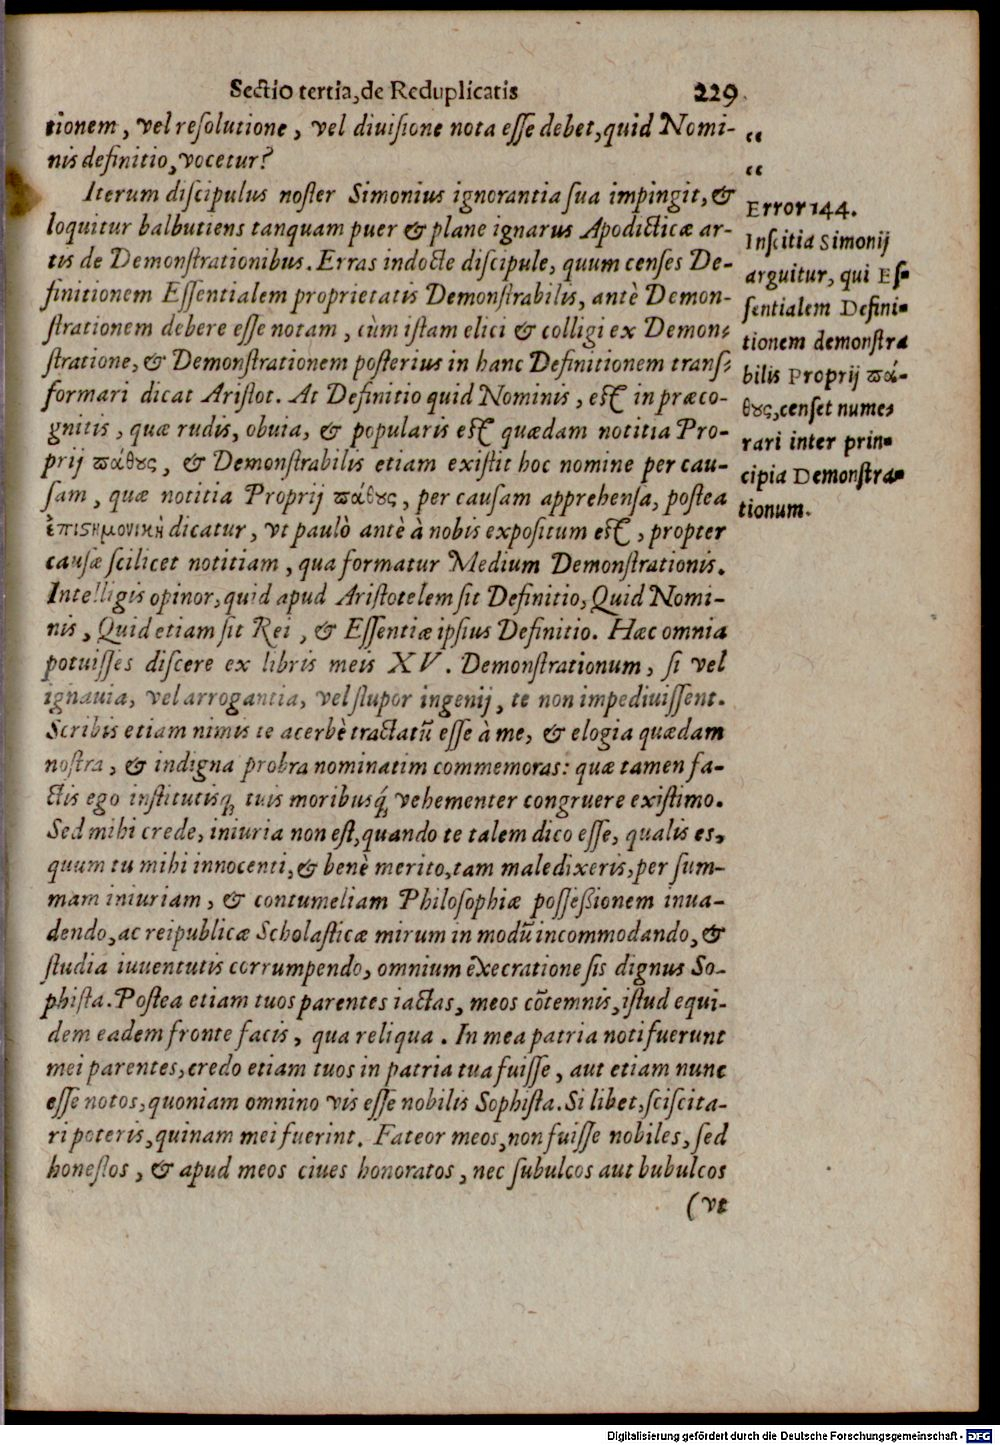 Sectio tertia, de Reduplicatis 229
tionem, vel reſolutione, vel diuiſione nota eſſe debet, quid Nomi-
nis definitio, vocetur?
Iterum diſcipulus noſter Simonius ignorantia ſua impingit, &
loquitur balbutiens tanquam puer & plane ignarus Apodicticæ ar-
tis de Demonſtrationibus. Erras indocte diſcipule, quum cenſes De-
finitionem Eſſentialem proprietatis Demonſtrabilis, antè Demon-
ſtrationem debere eſſe notam, cùm iſtam elici & colligi ex Demon-
ſtratione, & Demonſtrationem poſterius in hanc Definitionem tranſ-
formari dicat Ariſtot. At Definitio quid Nominis, eſt in præco-
gnitis, quæ rudis, obuia, & popularis eſt quædam notitia Pro-
prij ϖάθȣς, & Demonſtrabilis etiam exiſtit hoc nomine per cau-
ſam, quæ notitia Proprij ϖάθȣς, per cauſam apprehenſa, poſtea
ἐπιϛημονικὴ dicatur, vt paulò antè à nobis expoſitum eſt, propter
cauſæ ſcilicet notitiam, qua formatur Medium Demonſtrationis.
Intelligis opinor, quid apud Ariſtotelem ſit Definitio, Quid Nomi-
nis, Quid etiam ſit Rei, & Eſſentiæ ipſius Definitio. Hæc omnia
potuiſſes diſcere ex libris meis XV. Demonſtrationum, ſi vel
ignauia, vel arrogantia, vel ſtupor ingenij, te non impediuiſſent.
Scribis etiam nimis te acerbè tractatũ eſſe à me, & elogia quædam
noſtra, & indigna probra nominatim commemoras: quæ tamen fa-
ctis ego inſtitutisq́; tuis moribusq́; vehementer congruere exiſtimo.
Sed mihi crede, iniuria non eſt, quando te talem dico eſſe, qualis es,
quum tu mihi innocenti, & benè merito, tam maledixeris, per ſum-
mam iniuriam, & contumeliam Philoſophiæ poſſeſsionem inua-
dendo, ac reipublicæ Scholaſticæ mirum in modũ incommodando, &
ſtudia iuuentutis corrumpendo, omnium execratione ſis dignus So-
phiſta. Poſtea etiam tuos parentes iactas, meos cõtemnis, iſtud equi-
dem eadem fronte facis, qua reliqua. In mea patria noti fuerunt
mei parentes, credo etiam tuos in patria tua fuiſſe, aut etiam nunc
eſſe notos, quoniam omnino vis eſſe nobilis Sophiſta. Si libet, ſciſcita-
ri poteris, quinam mei fuerint. Fateor meos, non fuiſſe nobiles, ſed
honeſtos, & apud meos ciues honoratos, nec ſubulcos aut bubulcos
(vt
“
“
Error 144.
Inſcitia Simonij
arguitur, qui Eſ-
ſentialem Defini-
tionem demonſtra
bilis Proprij ϖά-
θȣς, cenſet nume-
rari inter prin-
cipia Demonſtra-
tionum.
Digitalisierung gefördert durch die Deutsche Forschungsgemeinschaft - DFG